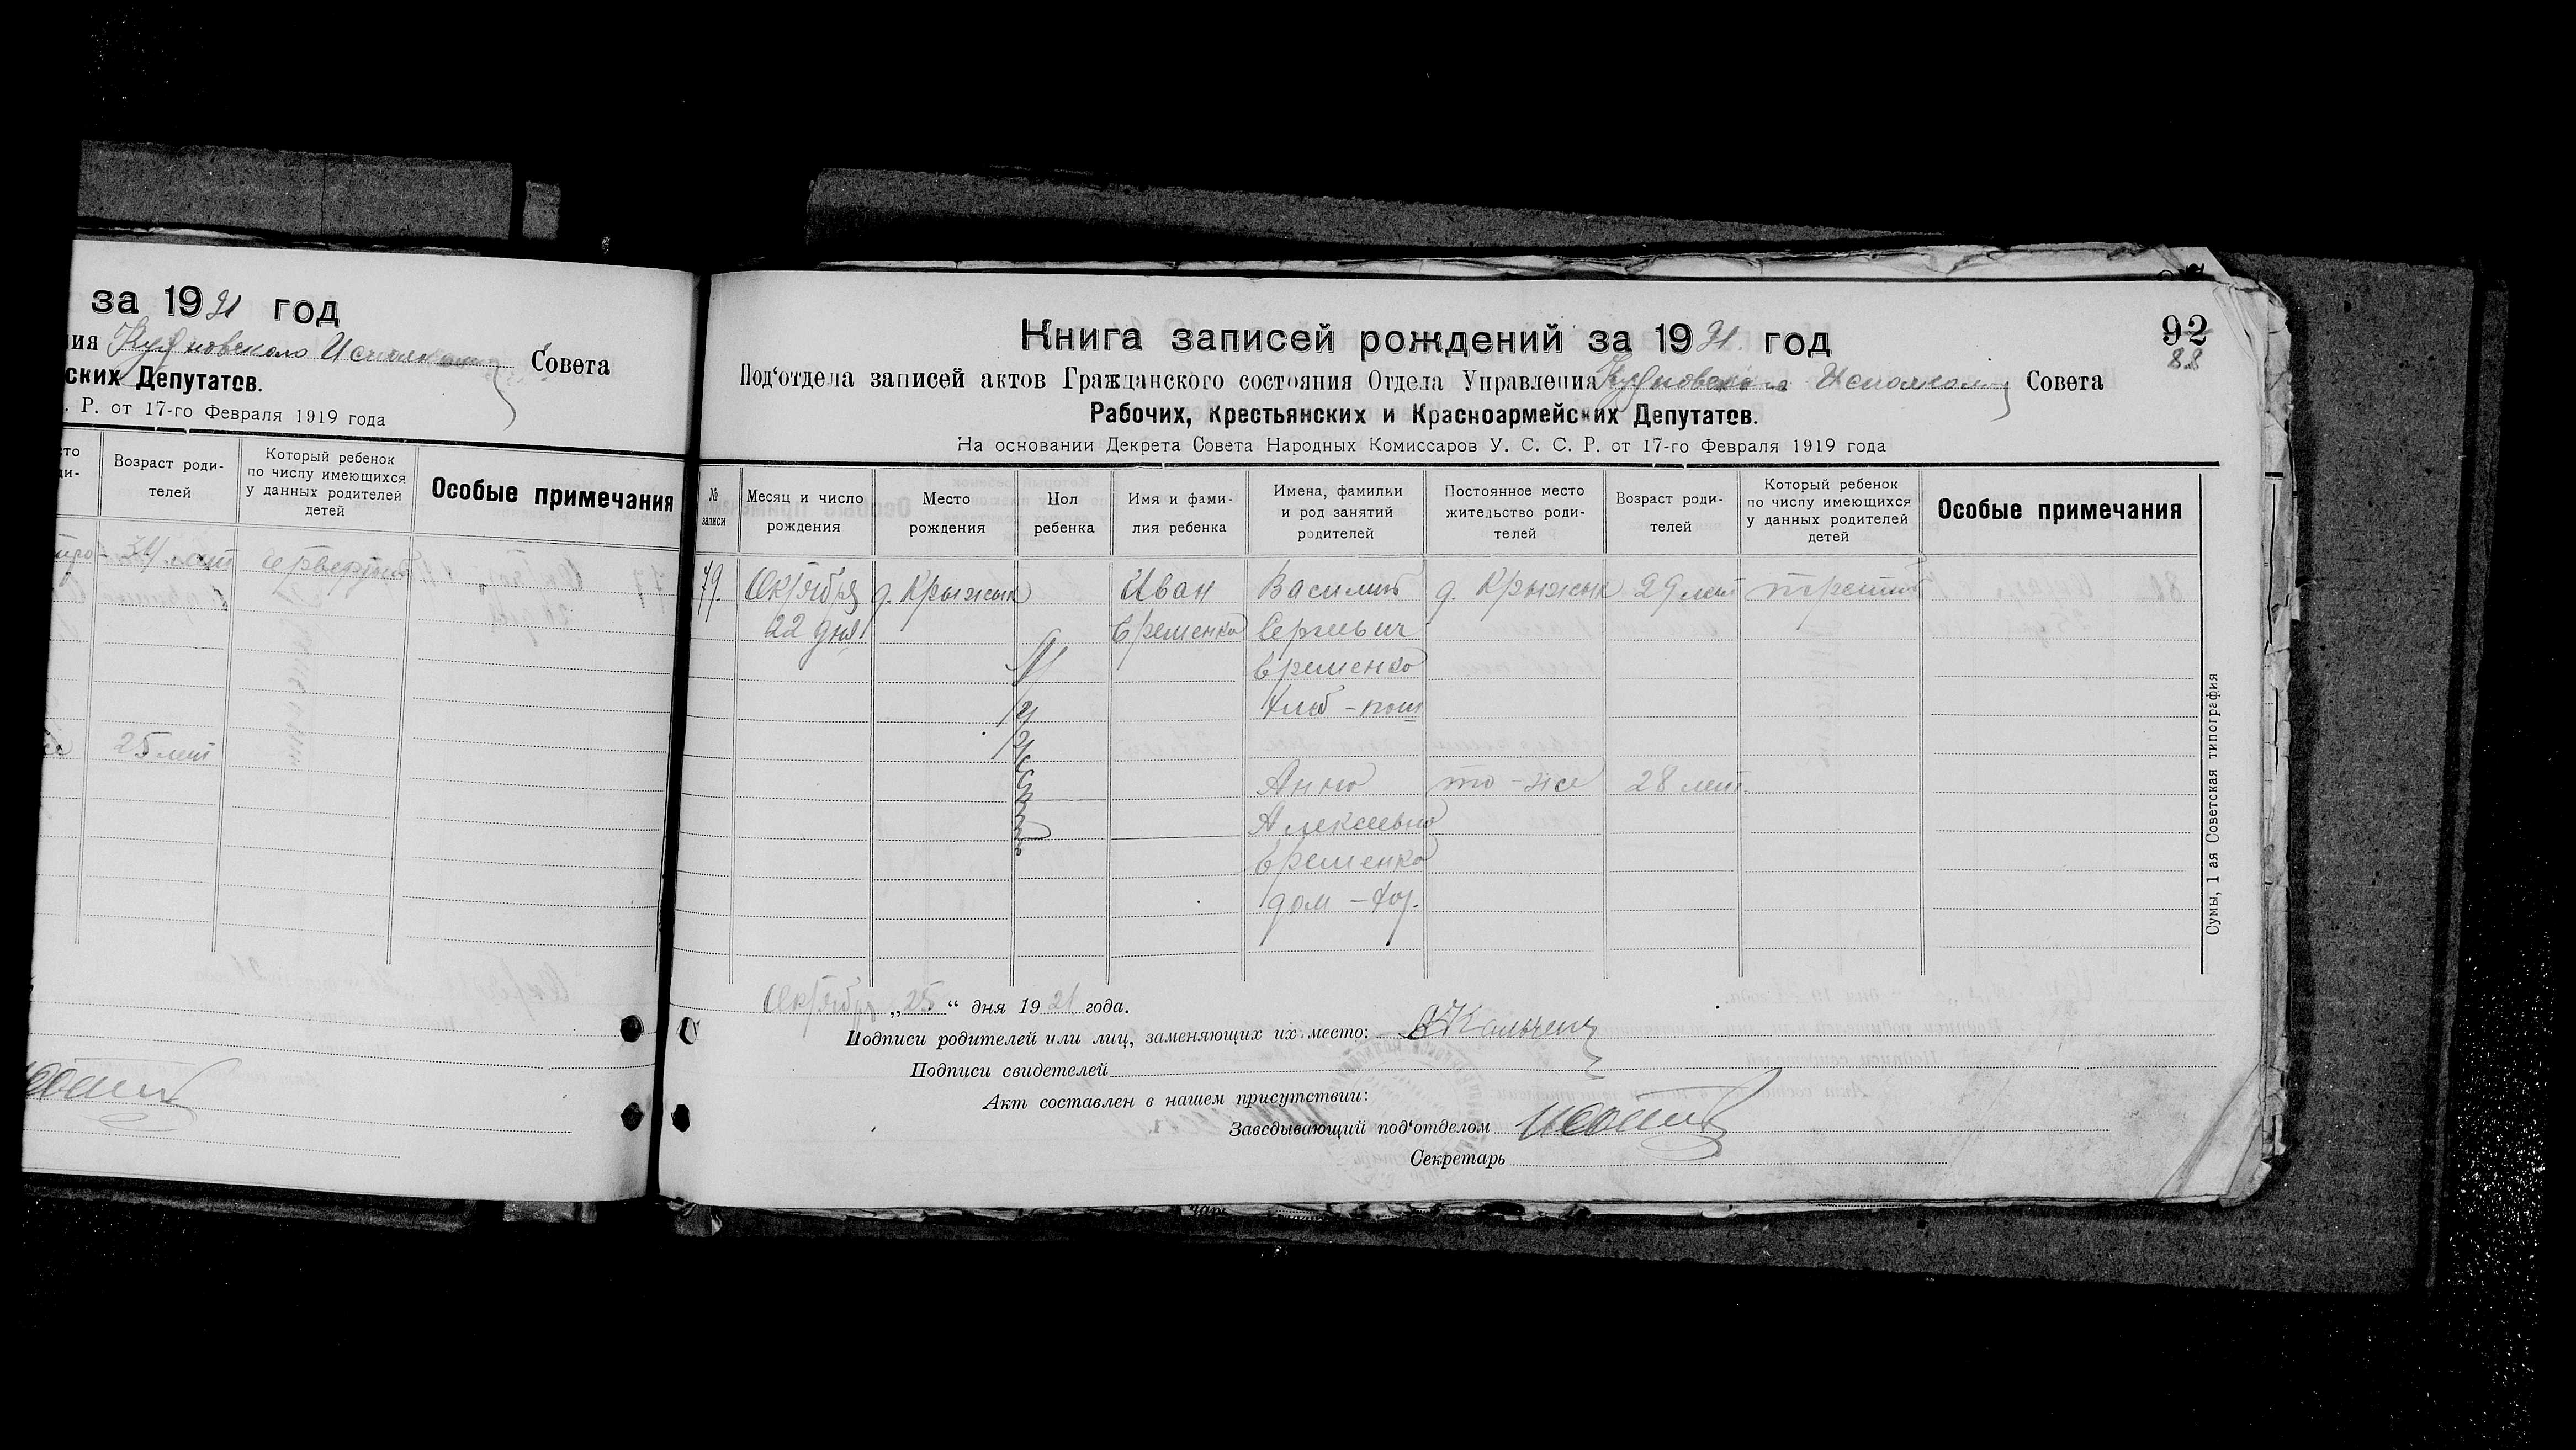 за 1921 год
ия Исполкома Совета
ских Депутатов.
. Р. от 17-го Февраля 1919 года
Возраст роди-
телей
Который ребенок
по числу имеющихся
у данных родителей
детей
Особые примечания
четвертый
25 лет
92
88
Книга записей рождений за 1921 год
Под‘отдела записей актов Гражданского состояния Отдела Управления Исполкома Совета
Рабочих, Крестьянских и Красноармейских Депутатов.
На основании Декрета Совета Народных Комиссаров У. С. С. Р. от 17-го Февраля 1919 года
№
записи
Месяц и число
рождения
Место
рождения
Пол
ребенка
Имя и фами-
лия ребенка
Имена, фамилии
и род занятий
родителей
Постоянное место
жительство роди-
телей
Возраст роди-
телей
Который ребенок
по числу имеющихся
у данных родителей
детей
Особые примечания
79.
Октября
22 дня
д. Крыжик
Мужской
Иван
Еременко
Василий
Сергеевич
Еременко
хлеб-паш
д. Крыжик
29 лет
третий
Анна
Алексеевна
Еременко
дом-хоз.
то-же
28 лет
Октября „25“ дня 1921 года.
Подписи родителей или лиц, заменяющих их место:
Подписи свидетелей
Акт составлен в нашем присутствии:
Заведывающий под‘отделом
Секретарь
Сумы, 1 ая Советская типография